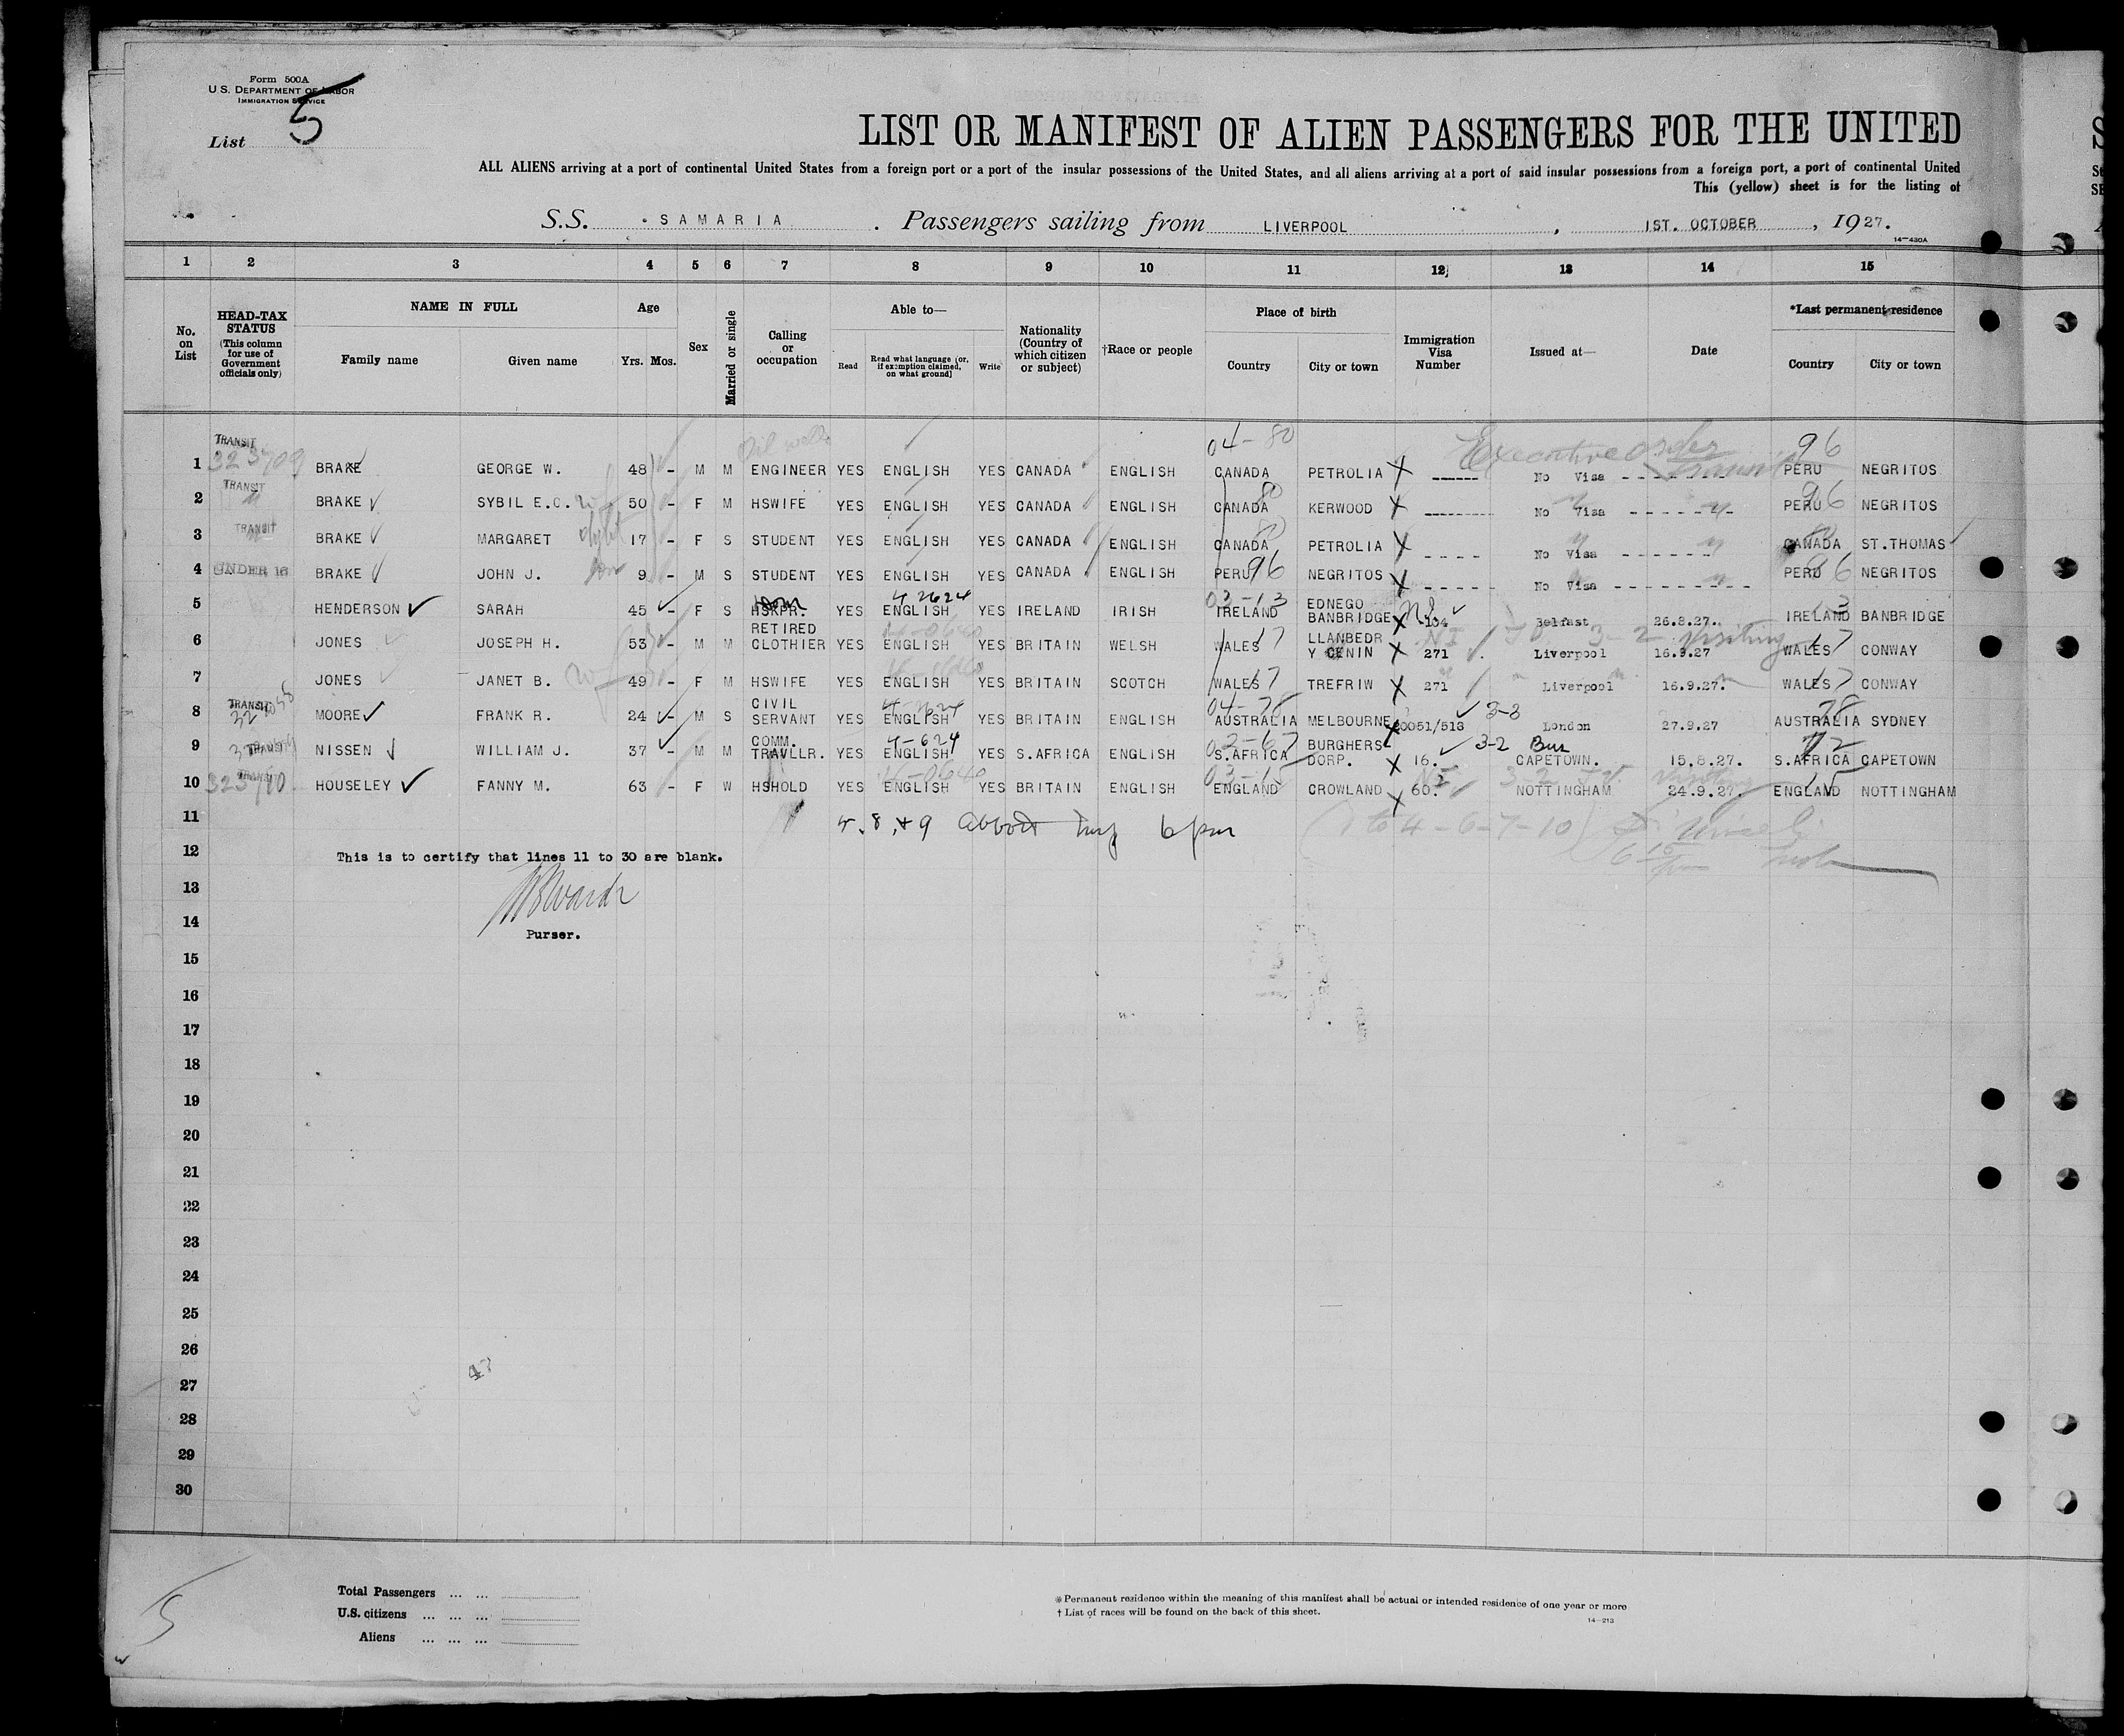 Form 500A
U.S. DEPARTMENT OF LABOR
IMMIGRATION SERVICE
List 5
LIST OR MANIFEST OF ALIEN PASSENGERS FOR THE UNITED
ALL ALIENS arriving at a port of continental United States from a foreign port or a port of the insular possessions of the United States, and all aliens arriving at a port of said insular possessions from a foreign port, a port of continental United
This (yellow) sheet is for the listing of
S.S. SAMARIA. Passengers sailing from LIVERPOOL, 1ST. OCTOBER, 1927.
14-430A
1 2 3 4 5 6 7 8 9 10 11 12 13 14 15
No. on List
HEAD-TAX STATUS (This column for use of Government officials only)
NAME IN FULL
Family name Given name
Age
Yrs. Mos.
Sex
Married or single
Calling or occupation
Able to—
Read Read what language [or, if exemption claimed, on what ground] Write
Nationality (Country of which citizen or subject)
†Race or people
Place of birth
Country City or town
Immigration Visa Number
Issued at—
Date
*Last permanent residence
Country City or town
Oil wells 04-80 Executive order 96
1 TRANSIT 323709 BRAKE GEORGE W. 48 - M M ENGINEER YES ENGLISH YES CANADA ENGLISH CANADA PETROLIA X ------ No Visa ------- Transit PERU NEGRITOS.
2 TRANSIT BRAKE SYBIL E.C. wf 50 - F M HSWIFE YES ENGLISH YES CANADA ENGLISH CANADA 80 KERWOOD X -------- No Visa ------- PERU 96 NEGRITOS
3 TRANSIT BRAKE MARGARET 17 - F S STUDENT YES ENGLISH YES CANADA ENGLISH CANADA 80 PETROLIA X ---- No Visa ------ CANADA 80 ST.THOMAS
4 UNDER 16 BRAKE JOHN J. son 9 - M S STUDENT YES ENGLISH YES CANADA ENGLISH PERU 96 NEGRITOS X ----- No Visa --------- PERU 96 NEGRITOS
5 HENDERSON SARAH 45 - F S HSKPR. YES ENGLISH YES IRELAND IRISH 03-13 IRELAND EDNEGO BANBRIDGE X 134 Belfast 26.8.27. IRELAND BANBRIDGE
6 JONES JOSEPH H. 53 - M M RETIRED CLOTHIER YES ENGLISH YES BRITAIN WELSH WALES 17 LLANBEDR Y CENIN X 271 Liverpool 3-2 16.9.27 Visiting WALES 17 CONWAY
7 JONES JANET B. wf 49 - F M HSWIFE YES ENGLISH YES BRITAIN SCOTCH WALES 17 TREFRIW X 271 Liverpool 16.9.27. WALES 17 CONWAY
8 TRANSIT MOORE FRANK R. 24 - M S CIVIL SERVANT YES ENGLISH YES BRITAIN ENGLISH 04-78 AUSTRALIA MELBOURNE X 20051/513 3-3 London 27.9.27 AUSTRALIA 78 SYDNEY
9 TRANSIT NISSEN WILLIAM J. 37 - M M COMM. TRAVLLR. YES 4-624 ENGLISH YES S.AFRICA ENGLISH 02-67 S.AFRICA BURGHERS DORP. X 16. 3-2 Bus CAPETOWN. 15.8.27. S.AFRICA 72 CAPETOWN
10 TRANSIT 323710 HOUSELEY FANNY M. 63 - F W HSHOLD YES ENGLISH YES BRITAIN ENGLISH 03-15 ENGLAND CROWLAND X 60. 3-2 NOTTINGHAM 24.9.27. Visiting ENGLAND 15 NOTTINGHAM
11 5, 8, + 9 6 pm 1 to 4-6-7-10
12 This is to certify that lines 11 to 30 are blank.
13
14 Purser.
15
16
17
18
19
20
21
22
23
24
25
26
27
28
29
30
Total Passengers ... ...
U.S. citizens ... ... ...
Aliens ... ... ...
5
* Permanent residence within the meaning of this manifest shall be actual or intended residence of one year or more
† List of races will be found on the back of this sheet.
14-213